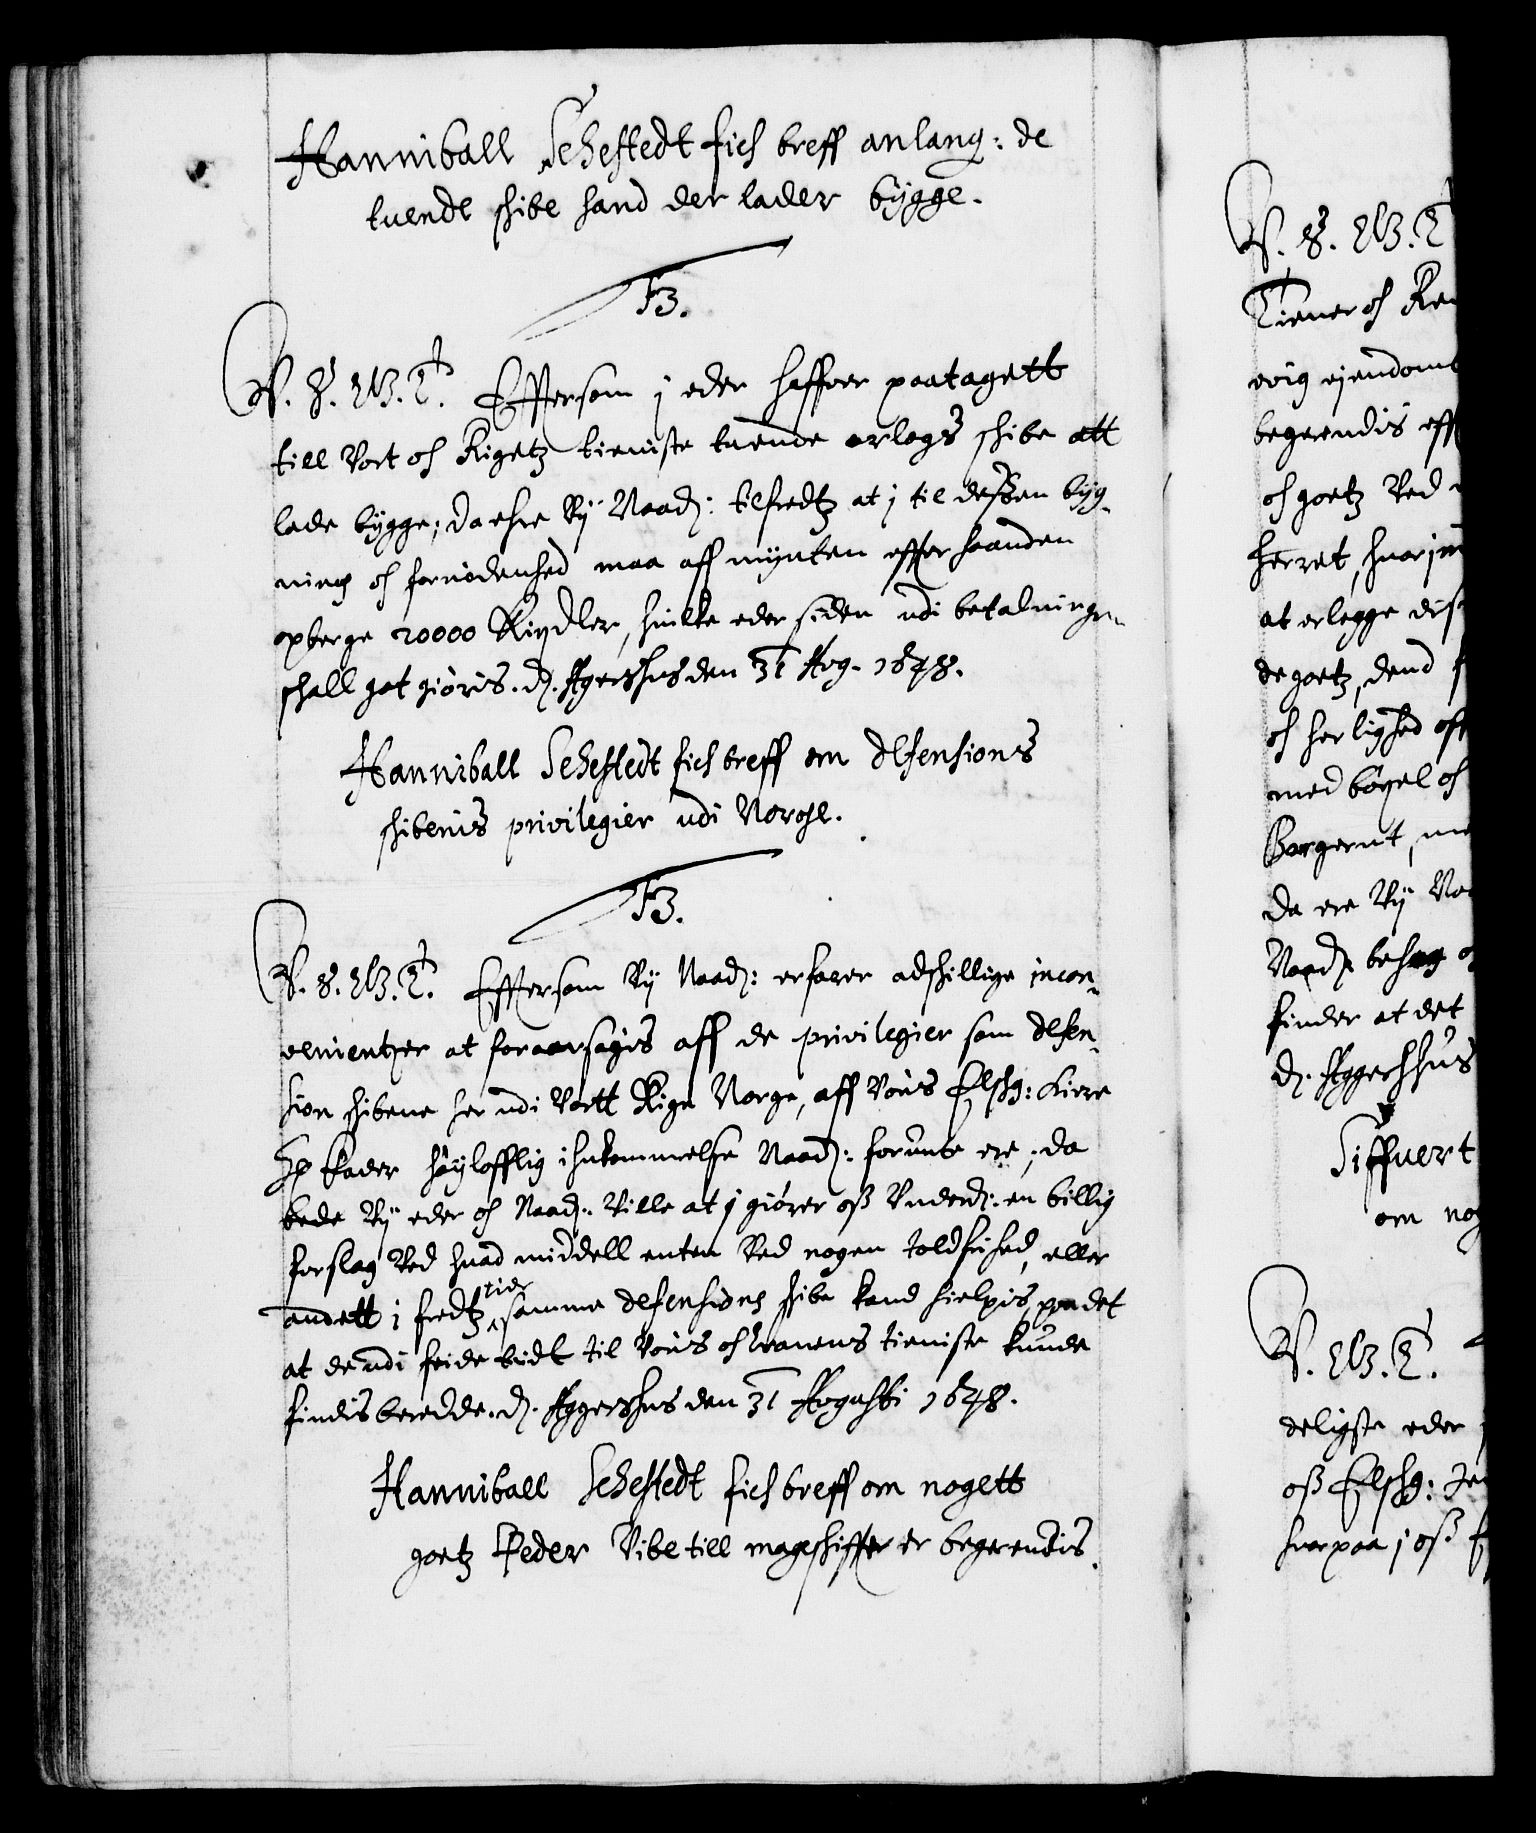 Hanniball Sehestedt fich breff anlang: de
tuende skibe hand der lader bygge.
F3.
V. S. G. V. T. Effterson j eder haffver paatagett
till Vort oc Rigetz tieniste tuende orlogs skibe att
lade bygge; da ehre Vij Naad: tilfredtz at j til dessen byg-
ning oc fornødenhed maa aff mynten effter haanden
opberge 20000 Rixdler, huilke eder siden udi betalningen
schall got giøris. D. Agershus den 31 Aug. 1648.
Hanniball Sehestedt fich breff om defensions
skibenis privilegier udi Norge.
F3.
V. S. G. V. T. Effterson Vij Naad: erfarer adskillige incon-
venientzer at foraarsagis aff de privilegier som defen-
sion skibene her udi Vortt Rige Norge, aff Voris Elskg: Kiere
H. fader høylofflig ihukommelse Naad: forunte ere; da
bede Vij eder oc Naad: Ville at j giører oss Underd: en billig
forslag Ved huad middell enten Ved nogen toldfrihed, eller
andett i fredtz tider samme defensions skibe kand hielpis, paa det
at de udi feide tidt til Voris oc Cronens tieniste kunde
findis beredde. D. Aggershus den 31 Augusti 1648.
Hanniball Sehestedt fich breff om nogett
goetz Peder Vibe till mageskiffte er begerendis.
V. S. G. T
Tiener oc
evig ejendomb
begerendis eff
oc goetz Ved
herret, huor im
at erlegge dis
de goetz, dend
oc herlighed off
med bøgel oc
Borgernt, me
da ere Vij Na
Naad: behag
finder at det
D. Aggershus
Siffuert
om nog
V. G. T.
deligste eder
oss Elskg:
huorpaa j oss